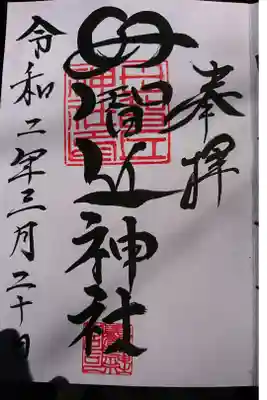 奉拝
母智丘神社
令和二年三月二十日